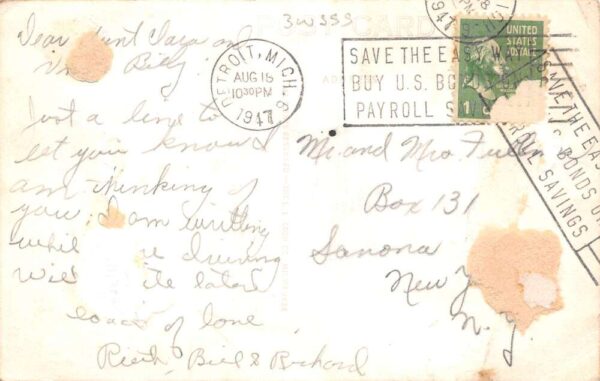 3W353
Dear Aunt and
Billy
Just a line to
let you know I
am thinking of
you. I am writing
while driving
Will later
loads of love
Bill & Richard
DETROIT, MICH. 6
AUG 18
1030PM
1947
SAVE THE EASY W
BUY U.S. BO
PAYROLL S
UNITED
STATES
POSTAGE
1
1947
VE THE EAS
BONDS O
L SAVINGS
Mr. and Mrs.
Box 131
Sonona
New Y
N.Y.